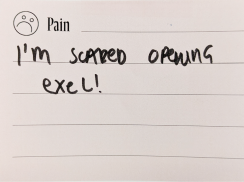 Pain
I'm SCARED OPENING
exeL!